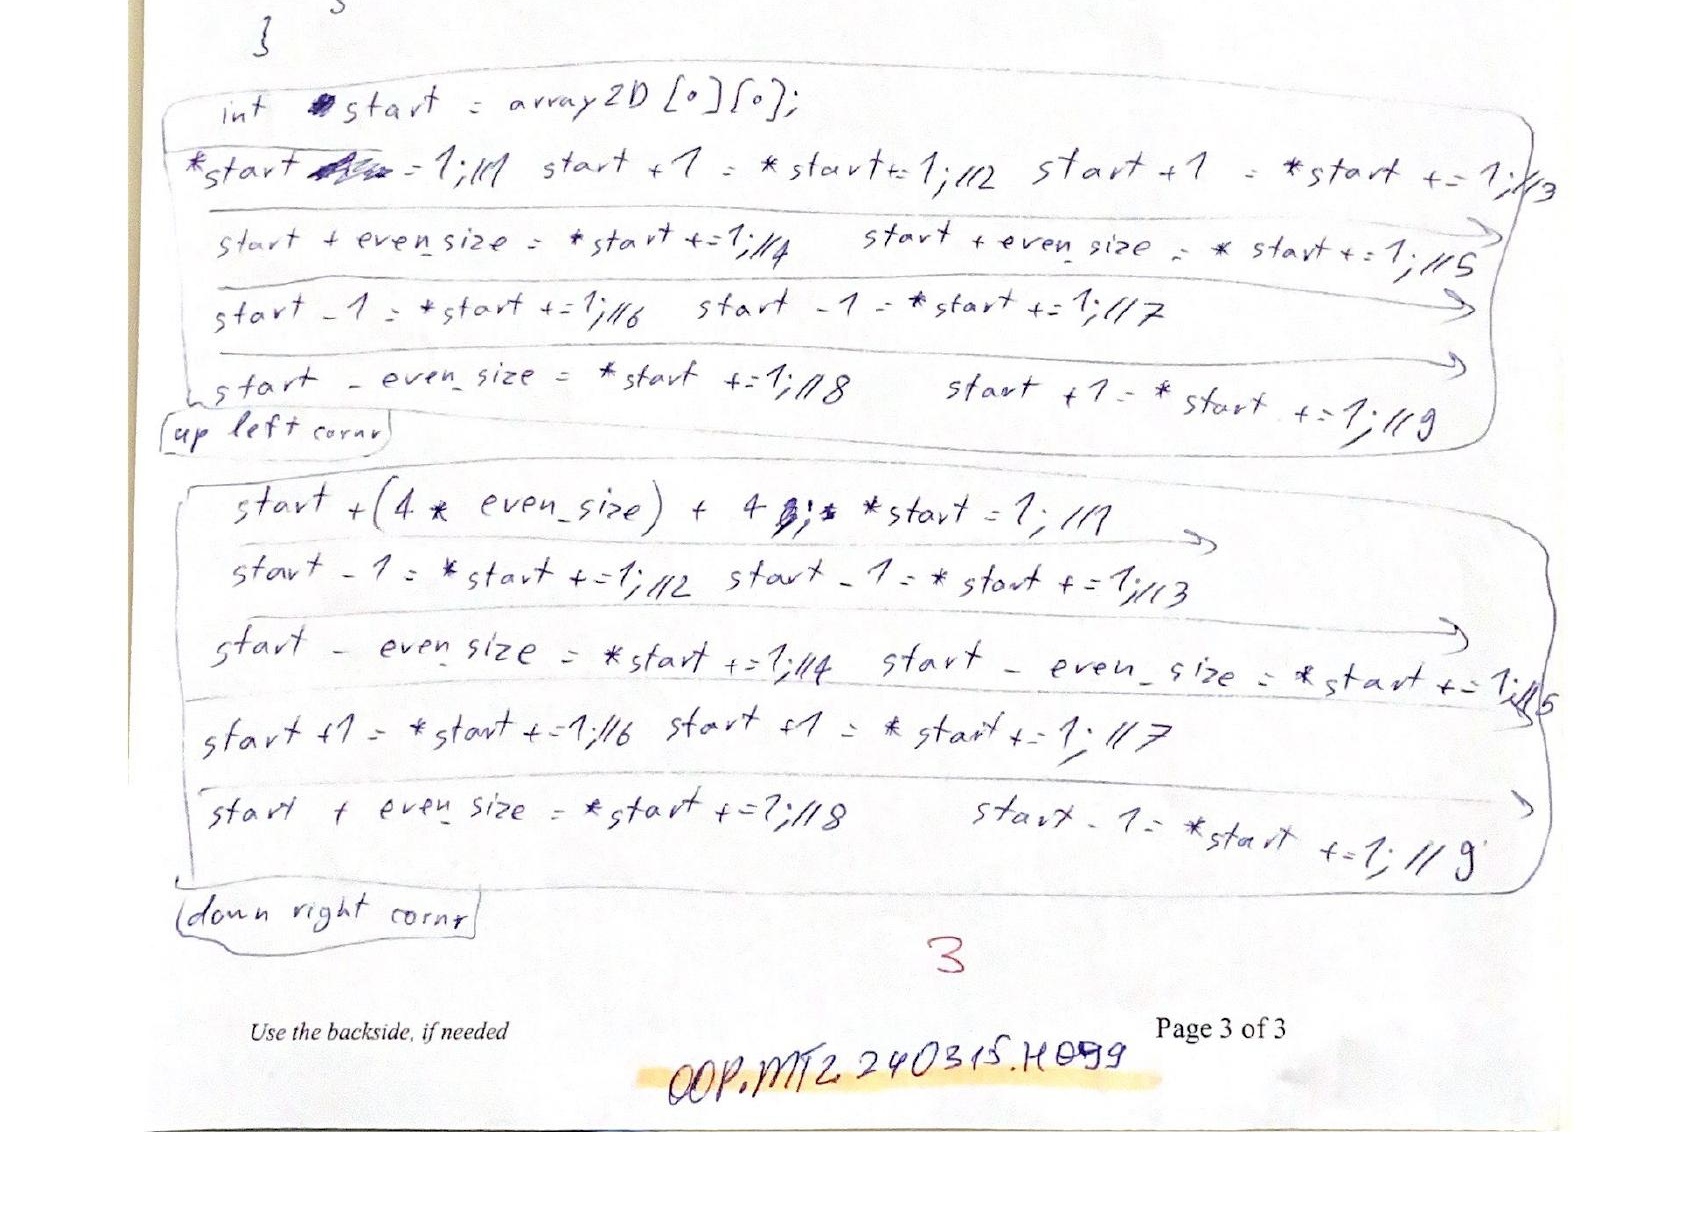 }
int start = array2D [0][0];
*start = 1;//1 start +1 = *start+=1;//2 start +1 = *start +=1;//3
start + even_size = *start +=1;//4 start + even_size = * start +=1;//5
start -1 = *start +=1;//6 start -1 = *start +=1;//7
start - even_size = *start +=1;//8 start +1 = * start +=1;//9
up left cornr
start +(4 * even_size) + 4 ; *start = 1; //1
start -1 = *start +=1;//2 start -1 = * start +=1;//3
start - even_size = *start +=1;//4 start - even_size = *start +=1;//5
start +1 = *start +=1;//6 start +1 = * start +=1; //7
start + even_size = *start +=1;//8 start -1 = *start +=1; //9
down right cornr
3
Use the backside, if needed
Page 3 of 3
OOP.MT2.240315.H099